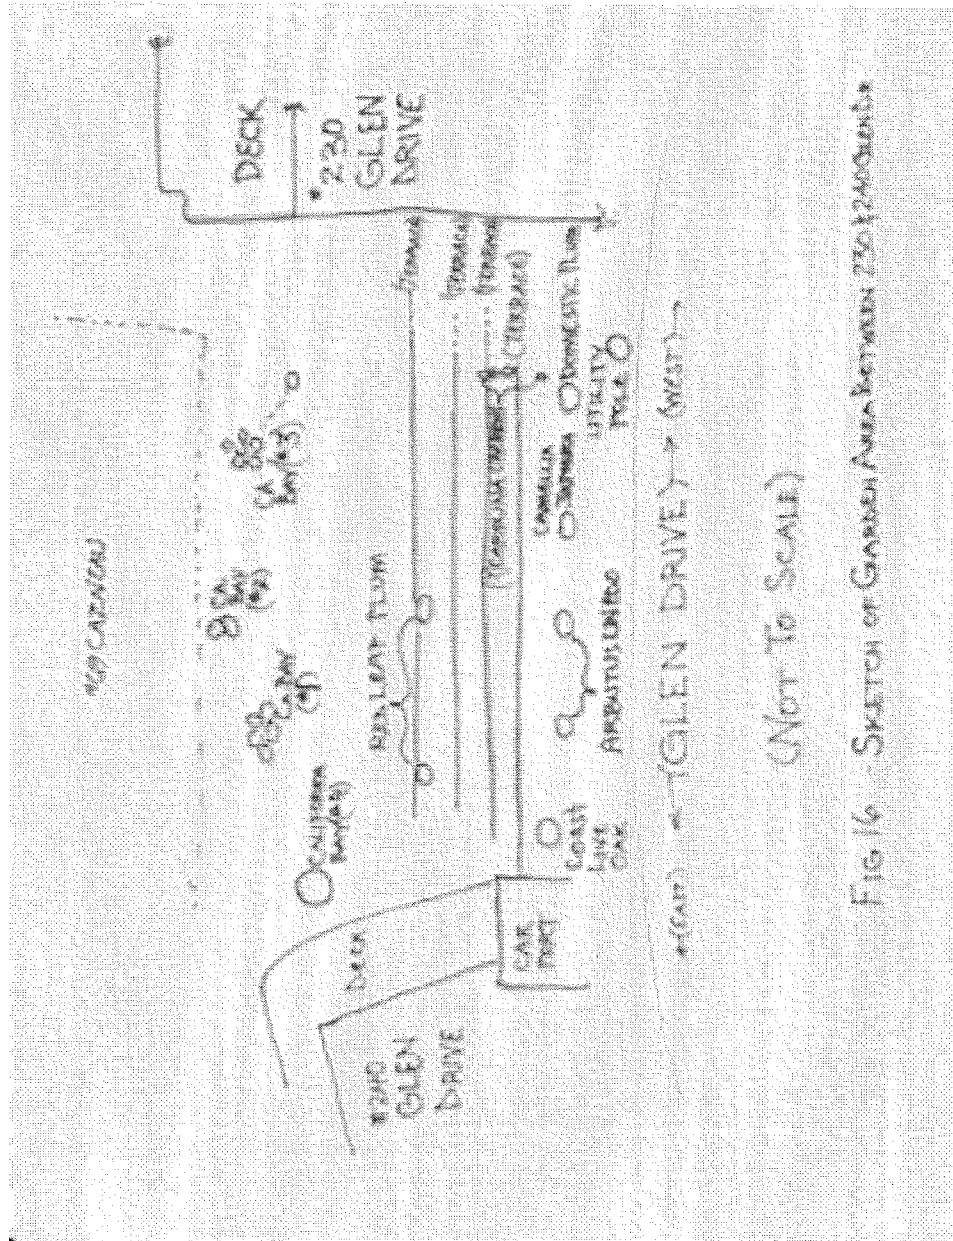 DECK
#230
GLEN
DRIVE
CARNON
CA
BAY
(#3)
CA
BAY
(#2)
CA BAY
(#1)
CALIFORNIA
BAY(#4)
RED LEAF PLUM
(TERRACE)
(TERRACE)
(TERRACE)
(TERRACE)
DOMESTIC PLUM
UTILITY
POLE
CAMELLIA
ARBUTUS UNEDO
COAST
LIVE
OAK
DECK
CAR
PORT
#240
GLEN
DRIVE
(EAST)
(GLEN DRIVE)
(WEST)
(NOT TO SCALE)
FIG 16 - SKETCH OF GARDEN AREA BETWEEN 230 & 240 GLEN DR